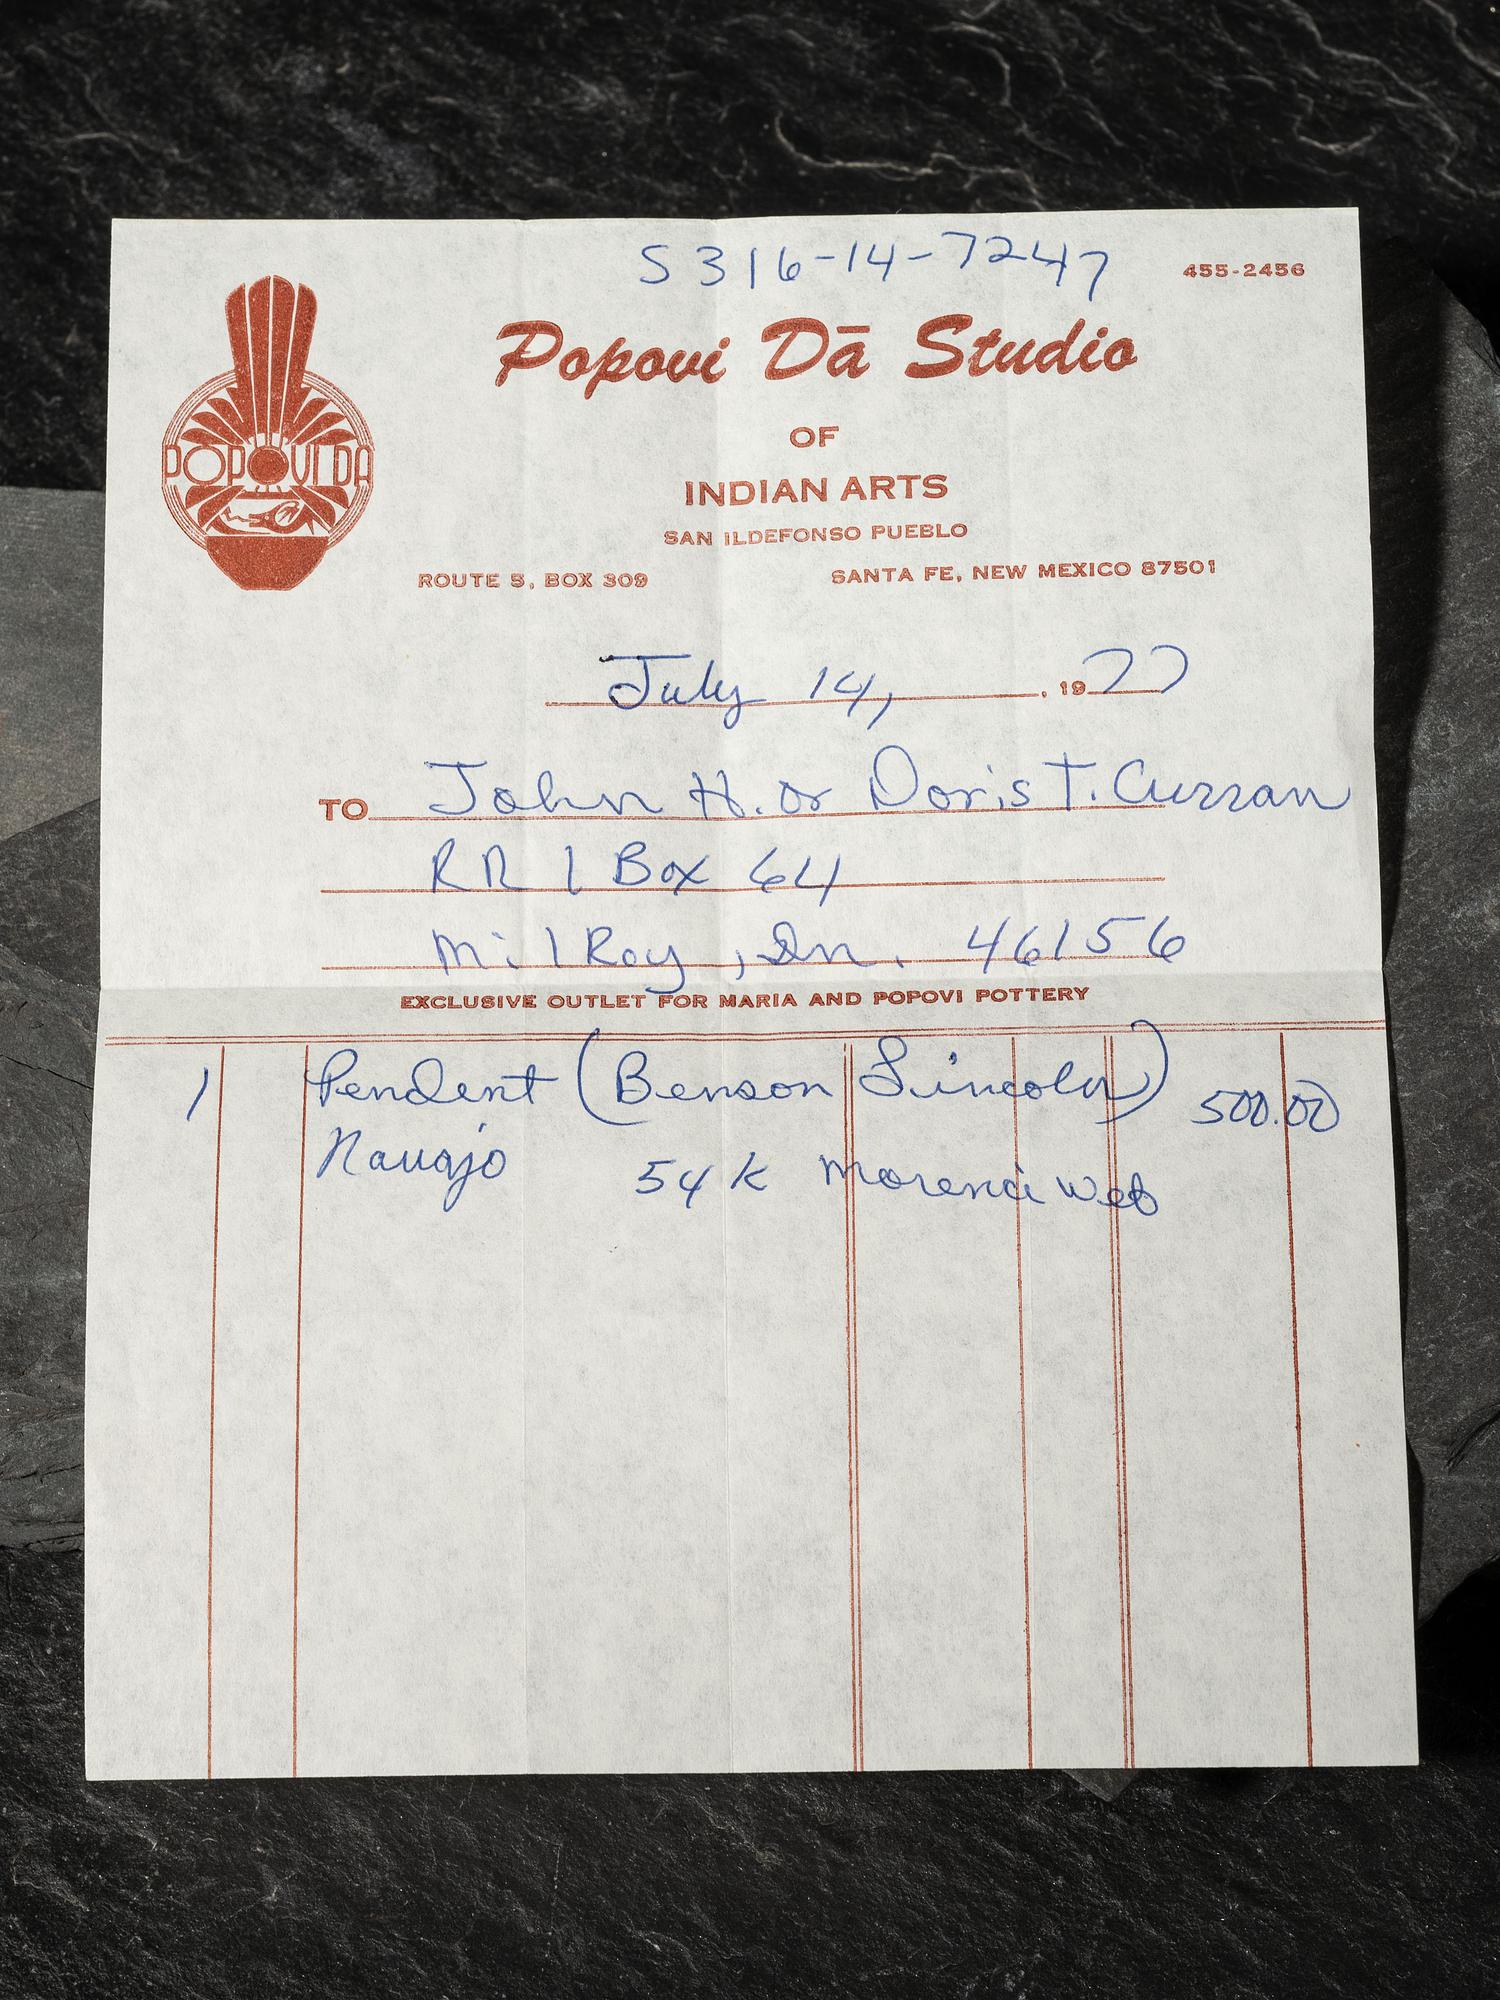 S316-14-7247
455-2456
Popovi Dā Studio
POPOVI DA
OF
INDIAN ARTS
SAN ILDEFONSO PUEBLO
ROUTE 5, BOX 309 SANTA FE, NEW MEXICO 87501
July 14, , 1977
TO John H. or Doris T. Curran
RR 1 Box 64
MilRoy, In. 46156
EXCLUSIVE OUTLET FOR MARIA AND POPOVI POTTERY
1 Pendent (Benson Lincoln) 500.00
Navajo 54 k Morenci web